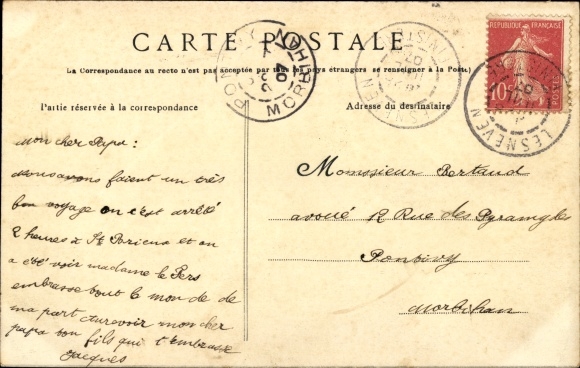 CARTE POSTALE
La Correspondance au recto n'est pas acceptée par tous les pays étrangers se renseigner à la Poste)
Partie réservée à la correspondance
Adresse du destinataire
REPUBLIQUE FRANÇAISE
10
POSTES
LESNEVEN
FINISTERE
07
LESNEVEN
FINISTERE
PONTIVY
MORBIHAN
07
Mon cher Papa:
nous avons faient un très
bon voyage on c'est arrêté
2 heures à St Brieuc et on
a été voir madame le Pers
embrasse tout le mon de de
ma part aurevoir mon cher
papa ton fils qui t'embrasse
Jacques
Monsieur Bertaud
avoué 12 Rue des
Pontivy
Morbihan